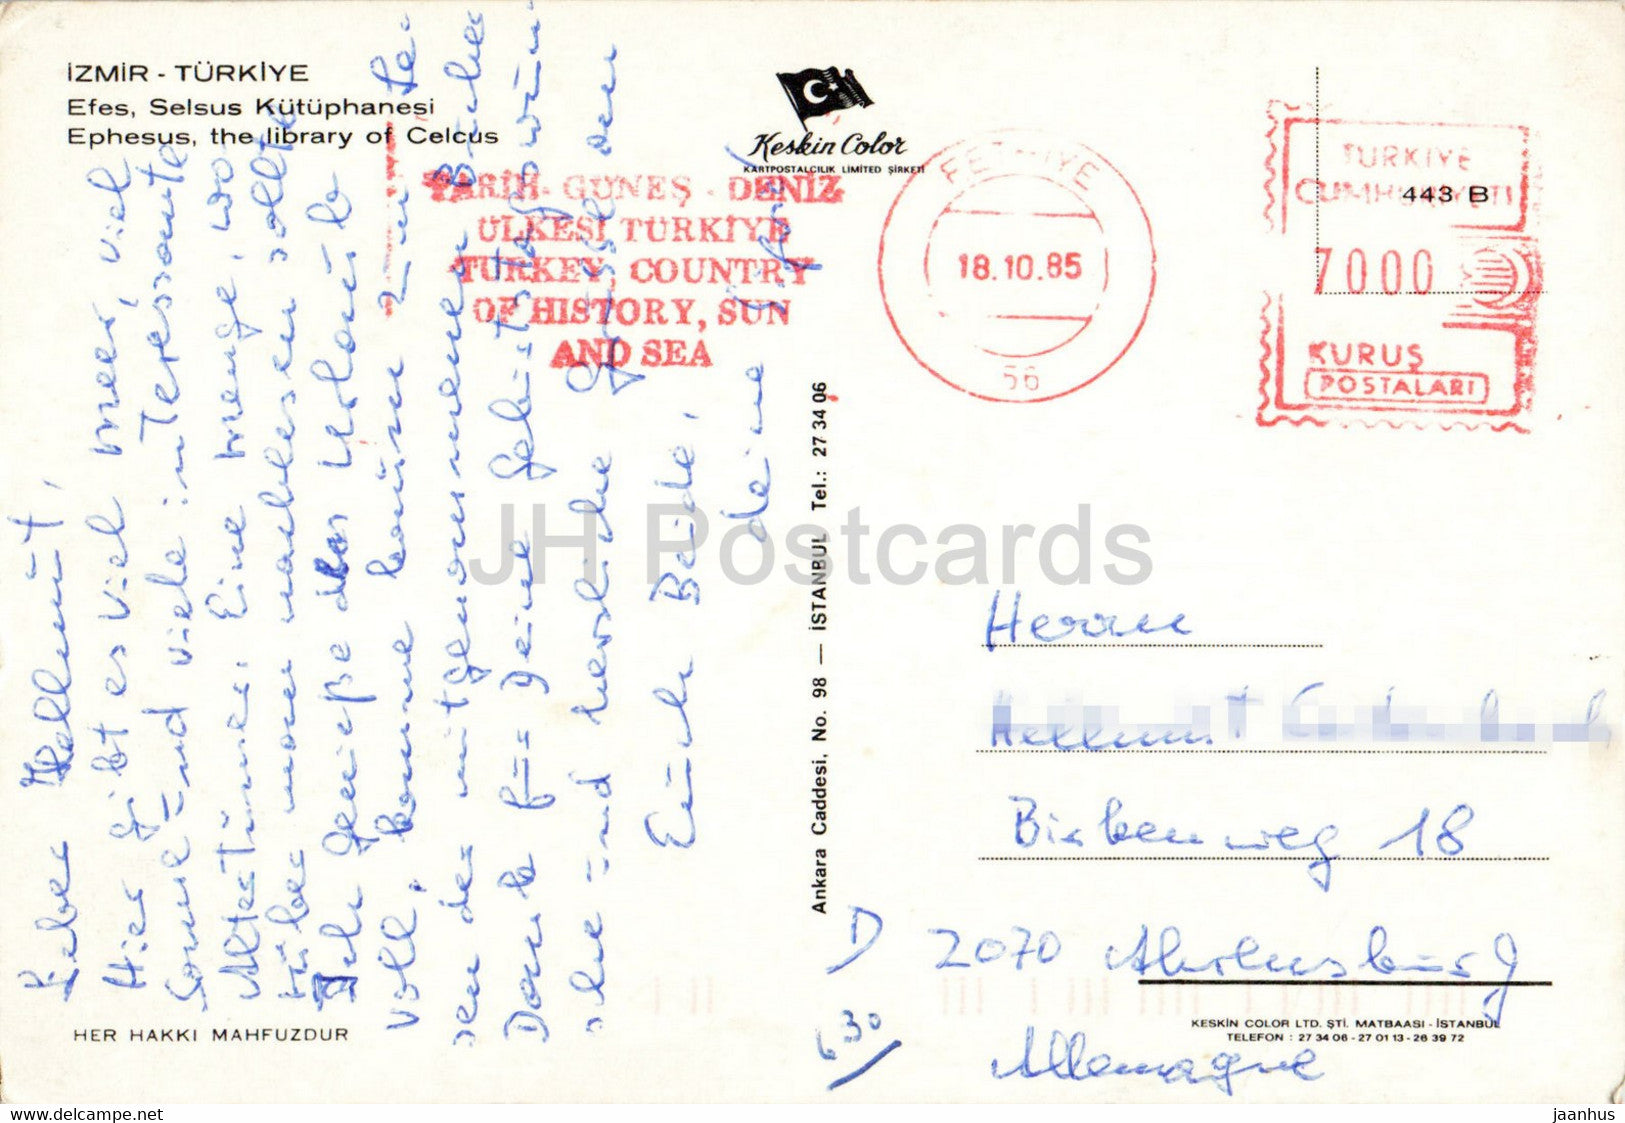 İZMİR - TÜRKİYE
Efes, Selsus Kütüphanesi
Ephesus, the library of Celcus
Keskin Color
KARTPOSTALCILIK LIMITED ŞİRKETİ
TARİH - GÜNEŞ - DENİZ
ÜLKESİ TÜRKİYE
TURKEY, COUNTRY
OF HISTORY, SUN
AND SEA
FETHİYE
18.10.85
56
TÜRKİYE
CUMHURİYETİ
443 B
7000
KURUŞ
POSTALARI
Lieber Hellmut,
Hier gibt es viel Meer, viel
Sonne und viele interessante
Altertümer. Eine Menge, wo
rüber man nachlesen sollte
Ich genieße den Urlaub
voll, komme kaum zum Le-
sen der mitgenommenen Bücher
Dank für Deine Geburtstagswün-
sche und herzliche Grüße an
Euch Beide,
deine
Ankara Caddesi, No. 98 — İSTANBUL Tel.: 27 34 06
Herrn
Hellmut
Birkenweg 18
D 2070 Ahrensburg
Allemagne
630
HER HAKKI MAHFUZDUR
KESKİN COLOR LTD. ŞTİ. MATBAASI - İSTANBUL
TELEFON : 27 34 06 - 27 01 13 - 26 39 72
JH Postcards
https://www.delcampe.net
jaanhus